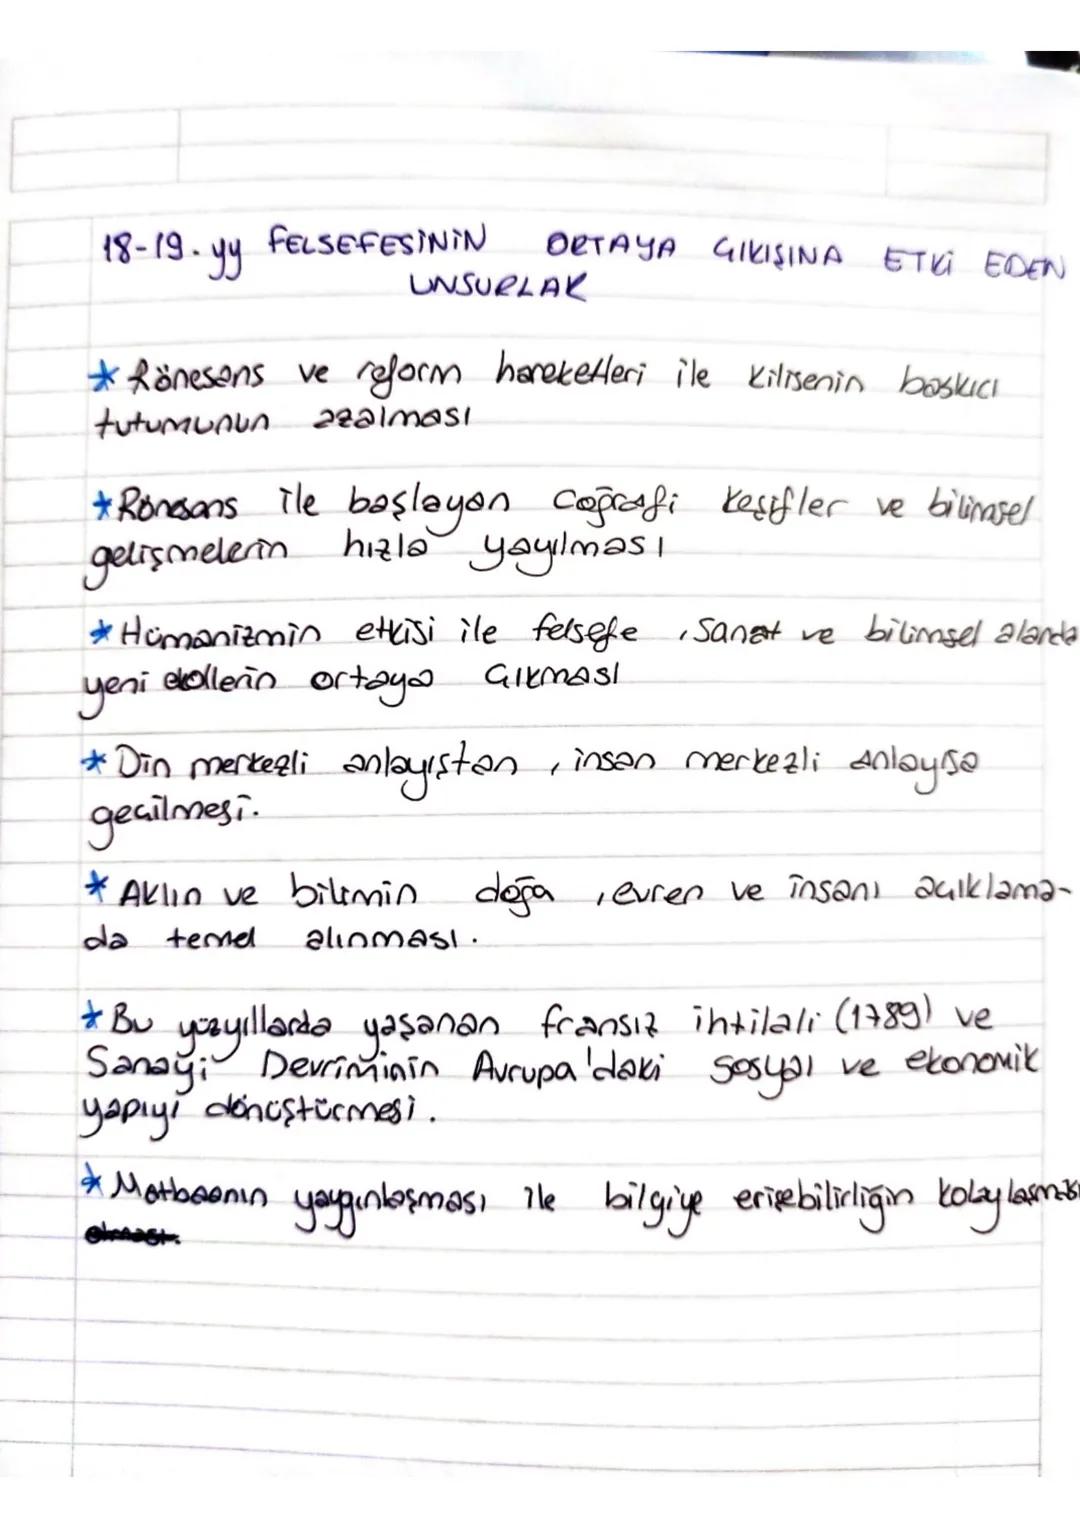 18-19. yy FELSEFESİNİN ORTAYA ÇIKIŞINA ETKİ EDEN
UNSURLAR
* Rönesans ve reform hareketleri ile kilisenin baskıcı
tutumunun azalması
* Rönesans ile başlayan Coğrafi keşifler ve bilimsel
gelişmelerin hızla yayılması
* Hümanizmin etkisi ile felsefe, Sanat ve bilimsel alanda
yeni ekollerin ortaya çıkması
* Din merkezli anlayıştan, insan merkezli anlayışa
geçilmesi.
* Aklın ve bilimin doğa, evren ve insanı açıklama-
da temel alınması.
* Bu yüzyıllarda yaşanan fransız ihtilali (1789) ve
Sanayi Devriminin Avrupa'daki sosyal ve ekonomik
yapıyı dönüştürmesi.
* Matbaanın yaygınlaşması ile bilgiye erişebilirliğin kolaylaşması